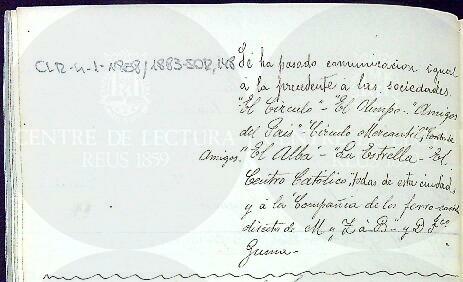 CLR-4-1-1868/1883-SOR,148
Se ha pasado comunicacion igual
á la precedente á las sociedades.
"El Círculo" - "El Olimpo" - "Amigos
del País" "Círculo Mercantil,"
Amigos. "El Alba" - "La Estrella" - El
Centro Católico, todas de esta ciudad,
y á la Compañia de los ferro-carriles
directos de M y Z á B" y D. Fco
Zuma.
CENTRE DE LECTURA
REUS 1859